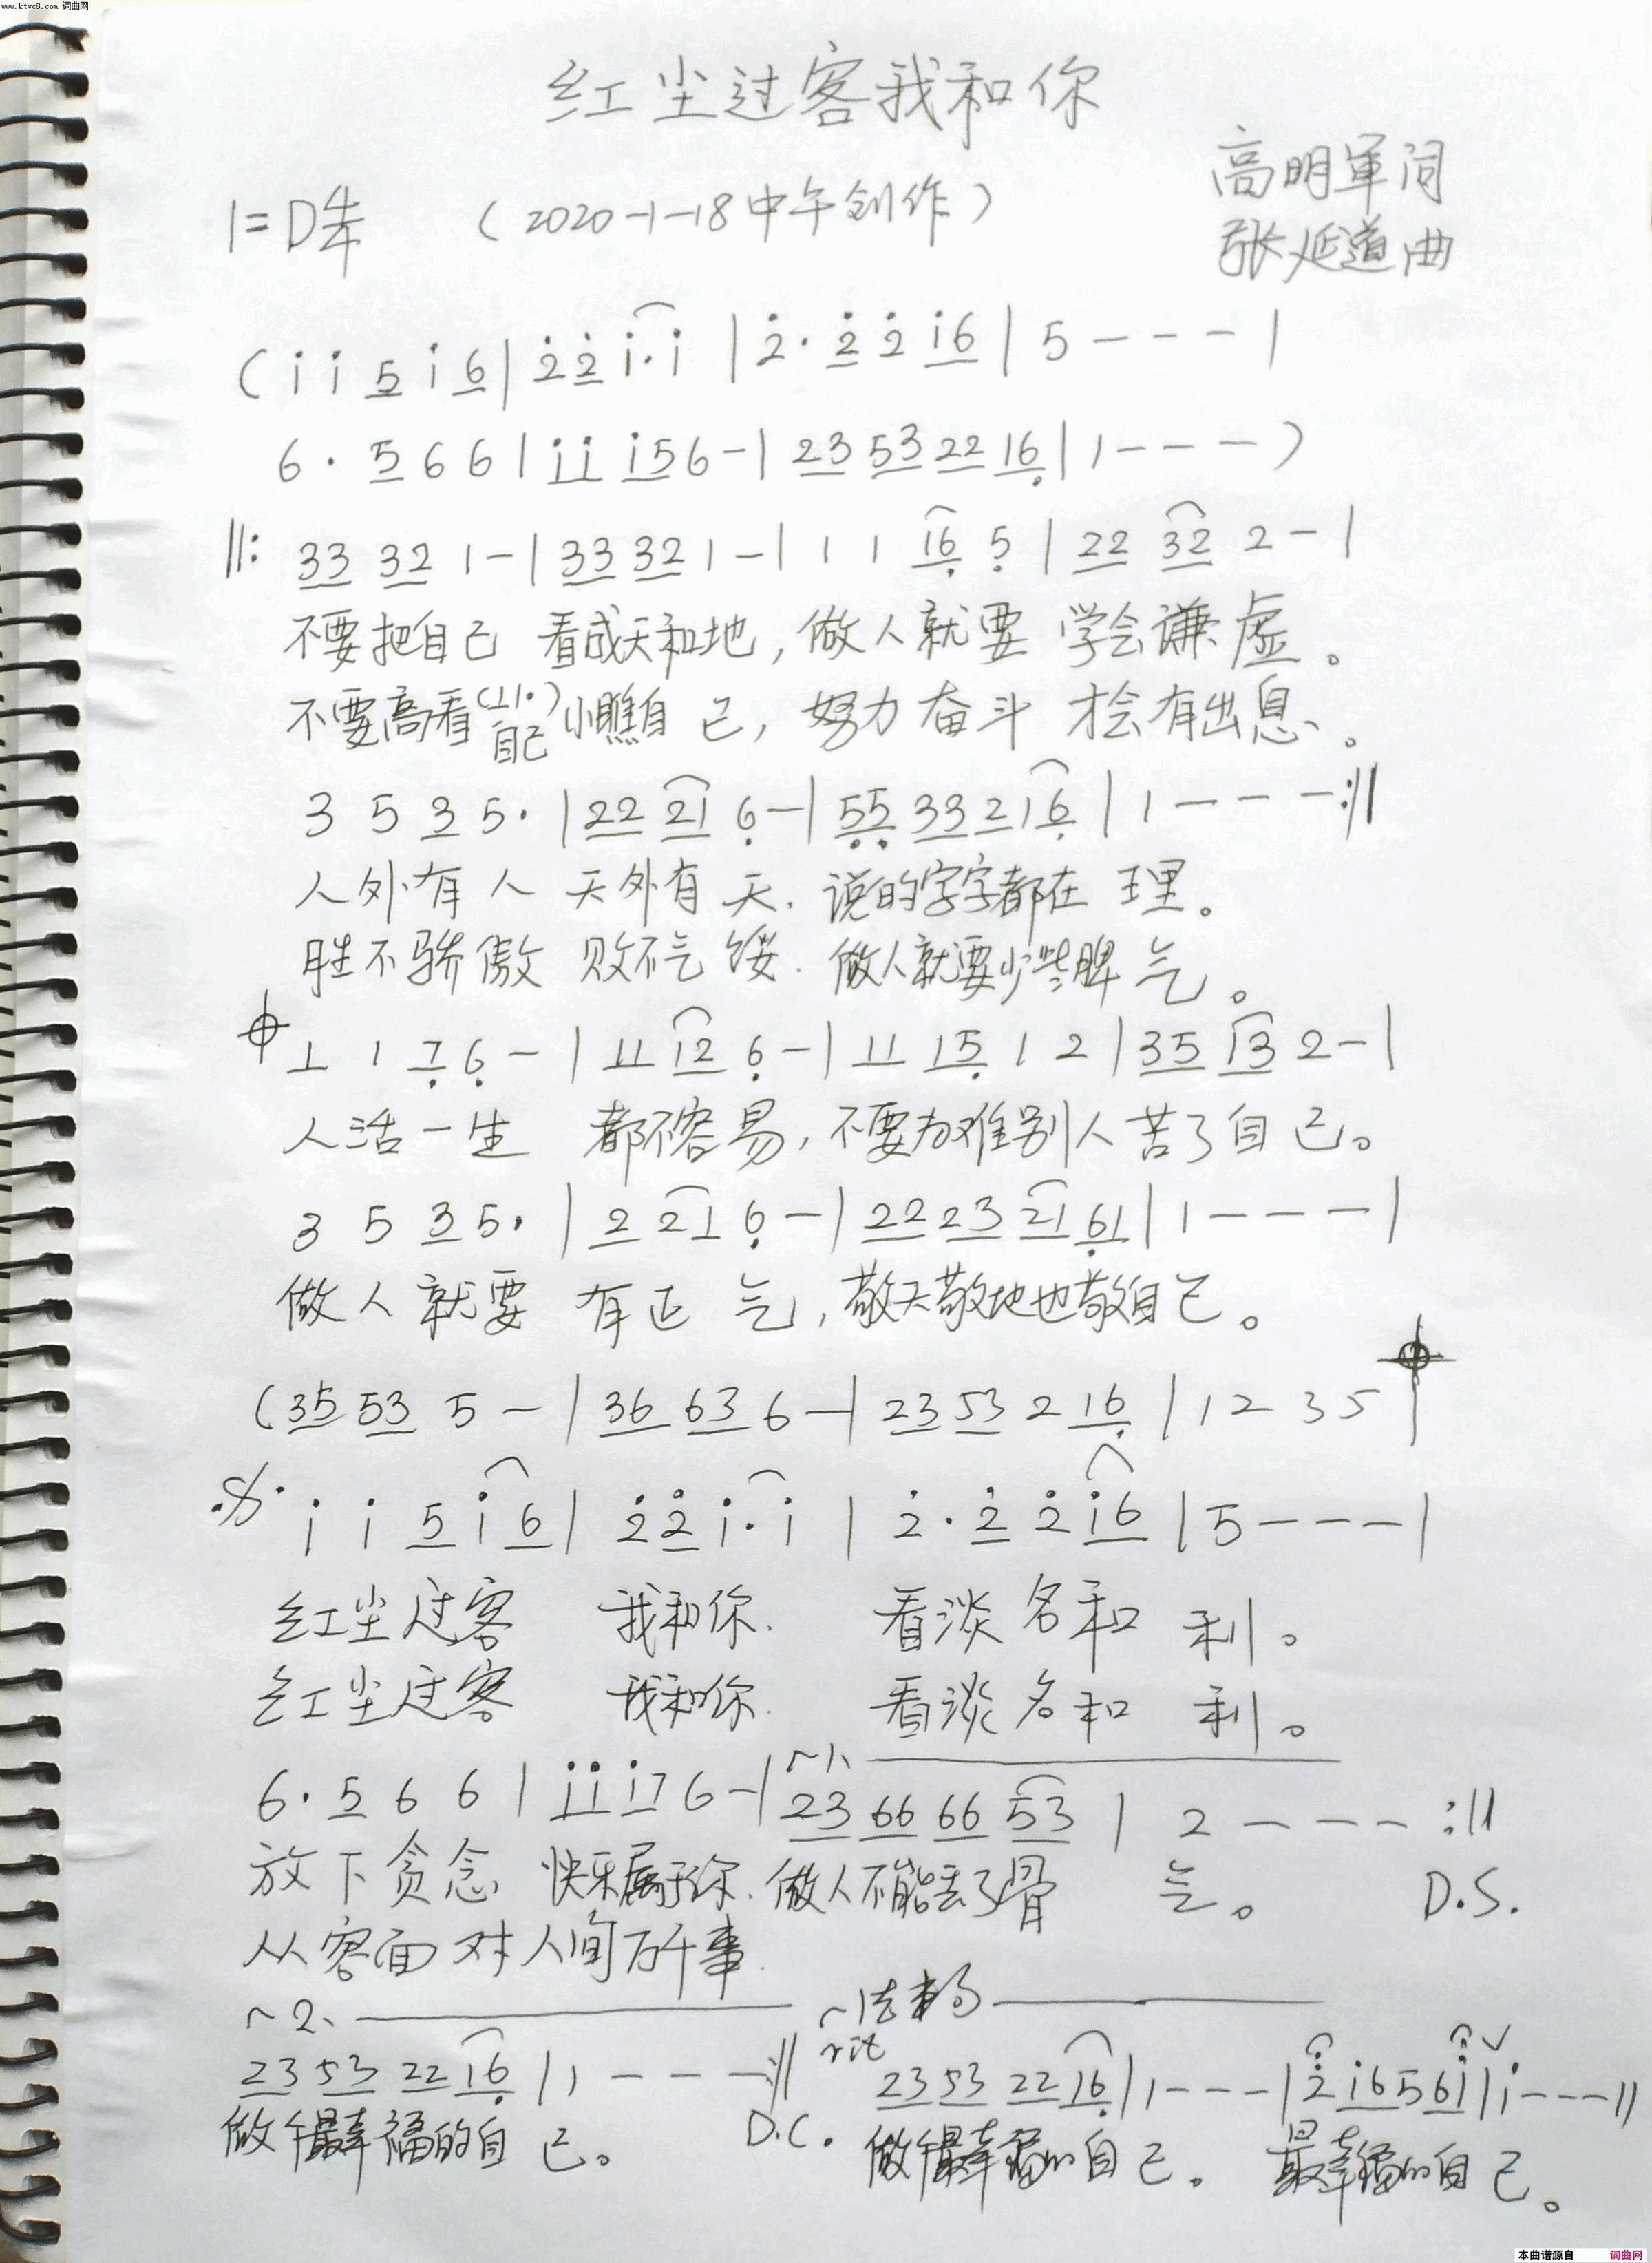 www.ktvc8.com 词曲网
红尘过客我和你
高明军词
1=D 4/4 （2020-1-18中午创作）
张延道曲
(i i 5 i 6 | 2 2 i· i | 2· 2 2 i6 | 5 - - - |
6· 5 6 6 | ii i5 6 - | 23 53 22 16 | 1 - - - )
‖: 33 32 1 - | 33 32 1 - | 1 1 16 5 | 22 32 2 - |
不要把自己 看成天和地,做人就要 学会谦虚。
不要高看(11·)自己 小瞧自己,努力奋斗 才会有出息。
3 5 3 5· | 22 21 6 - | 55 33 2 1 6 | 1 - - - :‖
人外有人 天外有天.说的字字都在理。
胜不骄傲 败不气馁.做人就要少些脾气。
1 1 7 6 - | 11 12 6 - | 11 15 1 2 | 35 13 2 - |
人活一生 都不容易,不要为难别人苦了自己。
3 5 3 5· | 2 21 6 - | 22 23 21 61 | 1 - - - |
做人就要 有正气,敬天敬地也敬自己。
(35 53 5 - | 36 63 6 - | 23 53 2 16 | 1 2 3 5 |
i i 5 i 6 | 2 2 i· i | 2· 2 2 i6 | 5 - - - |
红尘过客 我和你. 看淡名和利。
红尘过客 我和你. 看淡名和利。
6· 5 6 6 | ii i7 6 - | 1、 23 66 66 53 | 2 - - - :‖
放下贪念 快乐属于你.做人不能丢了骨气。 D.S.
从容面对人间万千事.
2、 结束句
23 53 22 16 | 1 - - - :‖ rit 23 53 22 16 | 1 - - - | 2 i6 5 6i | i - - - ‖
做个最幸福的自己。 D.C. 做个最幸福的自己。 最幸福的自己。
本曲谱源自 词曲网